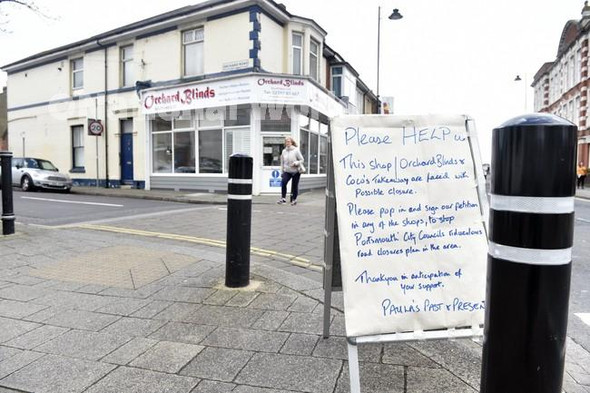 Orchard Blinds
Orchard Blinds
20
Please HELP us
This shop/Orchard Blinds &
Coco's Takeaway are faced with
possible closure.
Please pop in and sign our petition
in any of the shops, to stop
Portsmouth City Councils rediculous
road closures plan in the area.
Thankyou in anticipation of
your support.
PAULA'S PAST & PRESENT